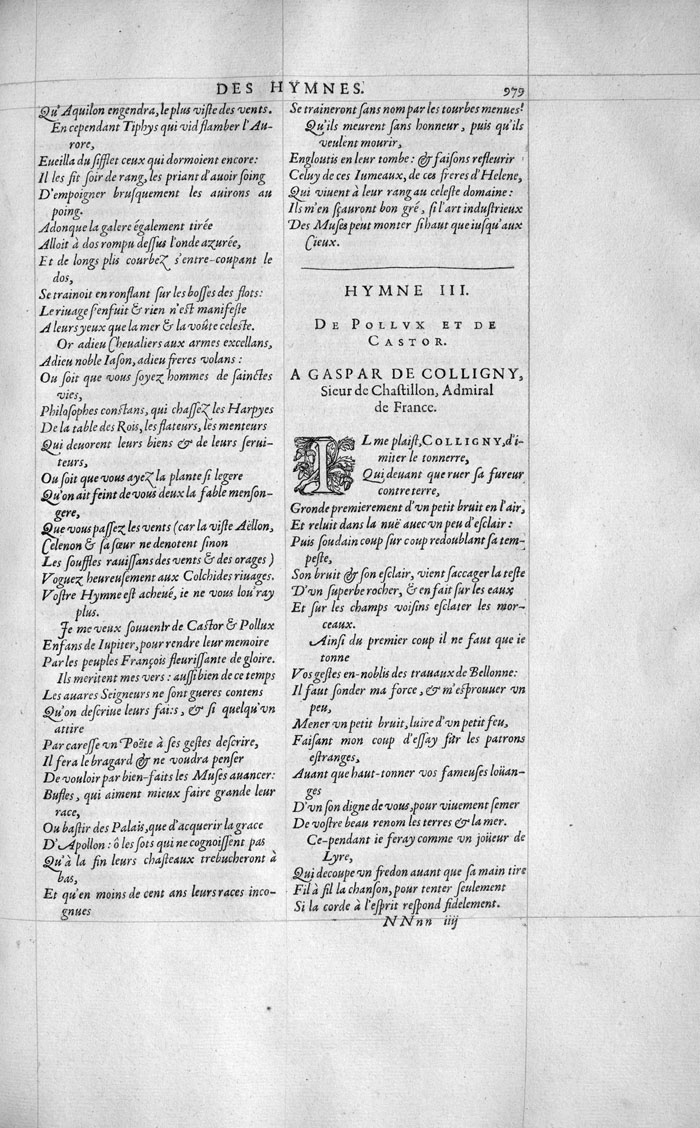 DES HYMNES.
979
Qu'Aquilon engendra, le plus viste des vents.
En cependant Tiphys qui vid flamber l'Au-
rore,
Eueilla du sifflet ceux qui dormoient encore:
Il les fit soir de rang, les priant d'auoir soing
D'empoigner brusquement les auirons au
poing.
Adonque la galere également tirée
Alloit à dos rompu dessus l'onde azurée,
Et de longs plis courbez s'entre-coupant le
dos,
Se trainoit en ronflant sur les bosses des flots:
Le riuage s'enfuit & rien n'est manifeste
A leurs yeux que la mer & la voûte celeste.
Or adieu Cheualiers aux armes excellans,
Adieu noble Iason, adieu freres volans:
Ou soit que vous soyez hommes de sainctes
vies,
Philosophes constans, qui chassez les Harpyes
De la table des Rois, les flateurs, les menteurs
Qui deuorent leurs biens & de leurs serui-
teurs,
Ou soit que vous ayez la plante si legere
Qu'on ait feint de vous deux la fable menson-
gere,
Que vous passez les vents (car la viste Aëllon,
Celenon & sa sœur ne denotent sinon
Les souffles rauissans des vents & des orages)
Voguez heureusement aux Colchides riuages.
Vostre Hymne est acheué, ie ne vous lou'ray
plus.
Je me veux souuenir de Castor & Pollux
Enfans de Iupiter, pour rendre leur memoire
Par les peuples François fleurissante de gloire.
Ils meritent mes vers: aussi bien de ce temps
Les auares Seigneurs ne sont gueres contens
Qu'on descriue leurs faits, & si quelqu'vn
attire
Par caresse vn Poëte à ses gestes descrire,
Il fera le bragard & ne voudra penser
De vouloir par bien-faits les Muses auancer:
Bufles, qui aiment mieux faire grande leur
race,
Ou bastir des Palais, que d'acquerir la grace
D'Apollon: ô les sots qui ne cognoissent pas
Qu'à la fin leurs chasteaux trebucheront à
bas,
Et qu'en moins de cent ans leurs races inco-
gnues
Se traineront sans nom par les tourbes menues!
Qu'ils meurent sans honneur, puis qu'ils
veulent mourir,
Engloutis en leur tombe: & faisons refleurir
Celuy de ces Iumeaux, de ces freres d'Helene,
Qui viuent à leur rang au celeste domaine:
Ils m'en sçauront bon gré, si l'art industrieux
Des Muses peut monter si haut que iusqu'aux
Cieux.
HYMNE III.
DE POLLVX ET DE
CASTOR.
A GASPAR DE COLLIGNY,
Sieur de Chastillon, Admiral
de France.
IL me plaist, COLLIGNY, d'i-
miter le tonnerre,
Qui deuant que ruer sa fureur
contre terre,
Gronde premierement d'vn petit bruit en l'air,
Et reluit dans la nuë auec vn peu d'esclair:
Puis soudain coup sur coup redoublant sa tem-
peste,
Son bruit & son esclair, vient saccager la teste
D'vn superbe rocher, & en fait sur les eaux
Et sur les champs voisins esclater les mor-
ceaux.
Ainsi du premier coup il ne faut que ie
tonne
Vos gestes en-noblis des trauaux de Bellonne:
Il faut sonder ma force, & m'esprouuer vn
peu,
Mener vn petit bruit, luire d'vn petit feu,
Faisant mon coup d'essay sur les patrons
estranges,
Auant que haut-tonner vos fameuses loüan-
ges
D'vn son digne de vous, pour viuement semer
De vostre beau renom les terres & la mer.
Ce-pendant ie feray comme vn joüeur de
Lyre,
Qui decoupe vn fredon auant que sa main tire
Fil à fil la chanson, pour tenter seulement
Si la corde à l'esprit respond fidelement.
NNnn iiij